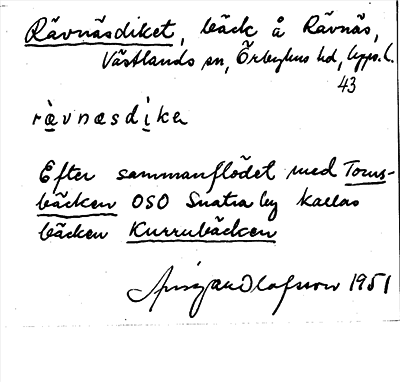 Rävnäsdiket, bäck å Rävnäs,
Västlands sn, Örbyhus hd, Upps. l.
43
rävnæsdike
Efter sammanflödet med Torus-
bäcken OSO Snatra by kallas
bäcken Kurrubäcken
Olofsson 1951